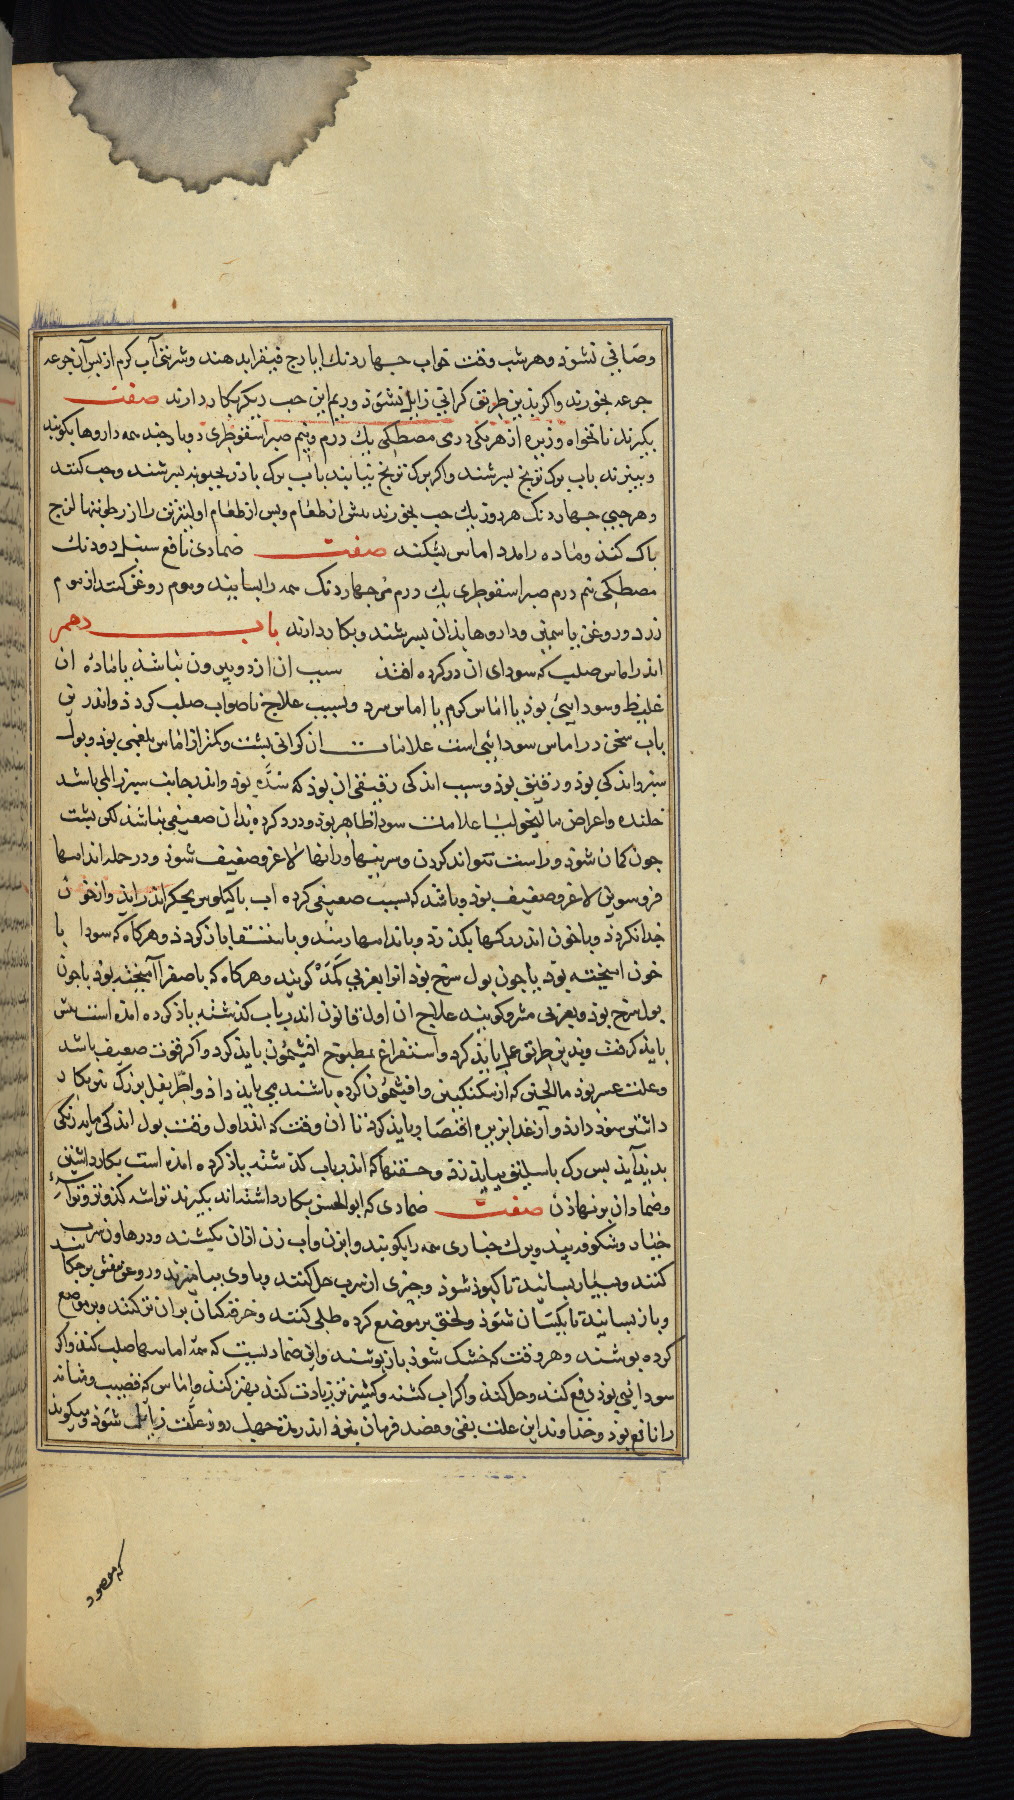 وصافی نشوذ وهر شب وقت خواب جهار دنك ایارج فیقرا بدهند وشربتی آب کرم از بس آن جرعه
جرعه بخورند واکر بذین طریق کرانی زایل نشوذ وریم این حب دیکر بکار دارند صفت
بکیرند نانخواه وزیره از هریکی دری مصطکی یك درم ونیم صبر اسقوطری دوبار جند همه داروها بکوبند
وببیزند باب برک ترنج بسرشند واکر برک ترنج نیابند باب برک باذرنجبویه بسرشند وحب کنند
وهر حبی جهار دنک هر روز یك حب بخورند بیش از طعام وبس از طعام اولیترتن را از رطوبتها لزج
باک کند وماده را مدد اماس بشکند صفت ضمادی نافع سنبل دو دنك
مصطکی نیم درم صبر اسقوطری یك درم مر جهار دنک همه را بسایند وموم روغن کنند از موم
زرد وروغن یاسمین وداروها بذان بسرشند وبکار دارند باب دهم
اندر اماس صلب که سودای ان در کرده افتذ سبب ان از دو بیرون نباشذ یا ماده ان
غلیظ وسودایی بوذ یا اماس کرم یا اماس سرد وبسبب علاج ناصواب صلب کردذ واندرین
باب سخن در اماس سودایی است علامات ان کرانی بشت وکمتر از اماس بلغمی بوذ وبول
سبز واندکی بوذ ورقیق بوذ وسبب اندکی رقیقی ان بوذ که سده بوذ واندر جانب سبرز المی باشد
خلنده واعراض مالیخولیا علامت سودا ظاهر بوذ ودرد کرده بذان صعیفی نباشذ لکن بشت
جون کمان شوذ وراست نتواند کردن وسرینها ورانها لاغر وضعیف شوذ ودر جمله اندامها
فروسوین لاغر وضعیف بوذ وباشد که بسبب ضعیفی کرده اب با کیلوس بجکر اندر ایذ واز خون
جدا نکردذ وبا خون اندر رکها بکذرد وباندامها رسد وباستسقا باز کردذ وهرکاه که سودا با
خون امیخته بوذ یا جون بول سرخ بوذ انرا بعربی کمَدْ کویند وهرکاه که باصفرا آمیخته بوذ یا جون
بول سرخ بوذ وبعربی کویند علاج ان اول قانون اندر باب کذشته یاذ کرده امذه است بیش
بایذ کرفت وبذین طریق عمل بایذ کرد واستفراغ بمطبوخ افیثمون بایذ کرد واکر قوت ضعیف باشد
وعلت عسر بوذ ماالجبن که از سکنکبین وافیثمون کرده باشند می بایذ داذ واطریفل بزرک نیز بکار
داشتن سوذ دارذ واز غذا بزیره اقتصار بایذ کرد تا ان وقت که اندر اول وقت بول اندکی مایه رنکی
بدیذ آیذ بس رک باسلیق ببایذ زد وحقنها که اندر باب کذشته یاذ کرده امذه است بکار داشتن
وضماد ان برنهاذن صفت ضمادی که ابوالحسن بکار داشته اند بکیرند تراشه کذو تر وتراشه
خیار وشکوفه بید وبرك خبازی همه را بکوبند وابزن واب زن ازان بکشند ودر هاون سرب
کنند وبسیار بسایند تا کبوذ شوذ وجیزی از سرب حل کنند وباوی بیامیزند وروغن بنفشه برجکانند
وباز بسایند تا یکسان شوذ ولختی بر موضع کرده طلی کنند وخرقه کتان بران تر کنند وبر موضع
کرده بوشند وهر وقت که خشک شوذ باز بوشند واین ضماد نیست که همه اماسها صلب کند واکر
سودایی بوذ دفع کند وحل کند واکر اب کشنیز تر زیادت کند بهتر کند واماس که قضیب ومثانه
را نافع بوذ وخداوند این علت بقی وفصد فرمان بوذ اندر مدت جهل روز علت زایل شوذ ومیکویذ
که مقصود